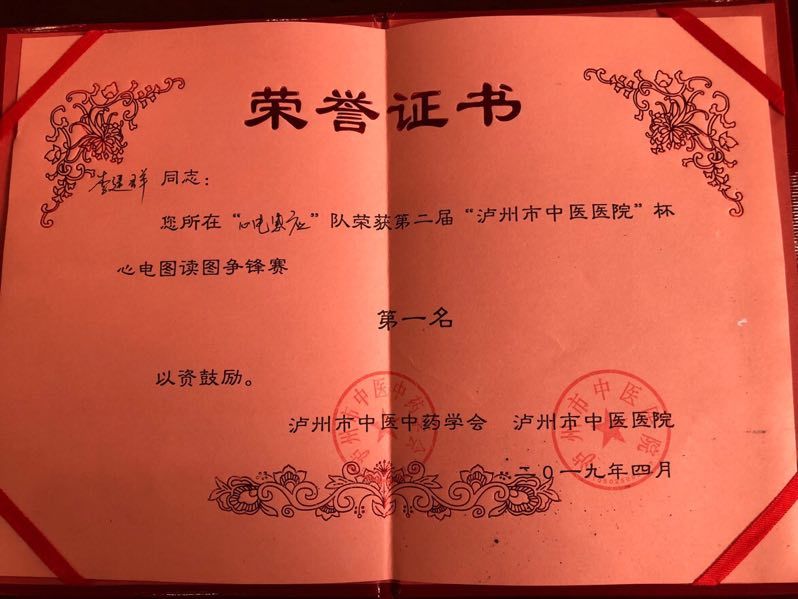 荣誉证书
李建群 同志：
您所在“心电感应”队荣获第二届“泸州市中医医院”杯
心电图读图争锋赛
第一名
以资鼓励。
泸州市中医中药学会 泸州市中医医院
二0一九年四月
泸州市中医中药学会
泸州市中医医院